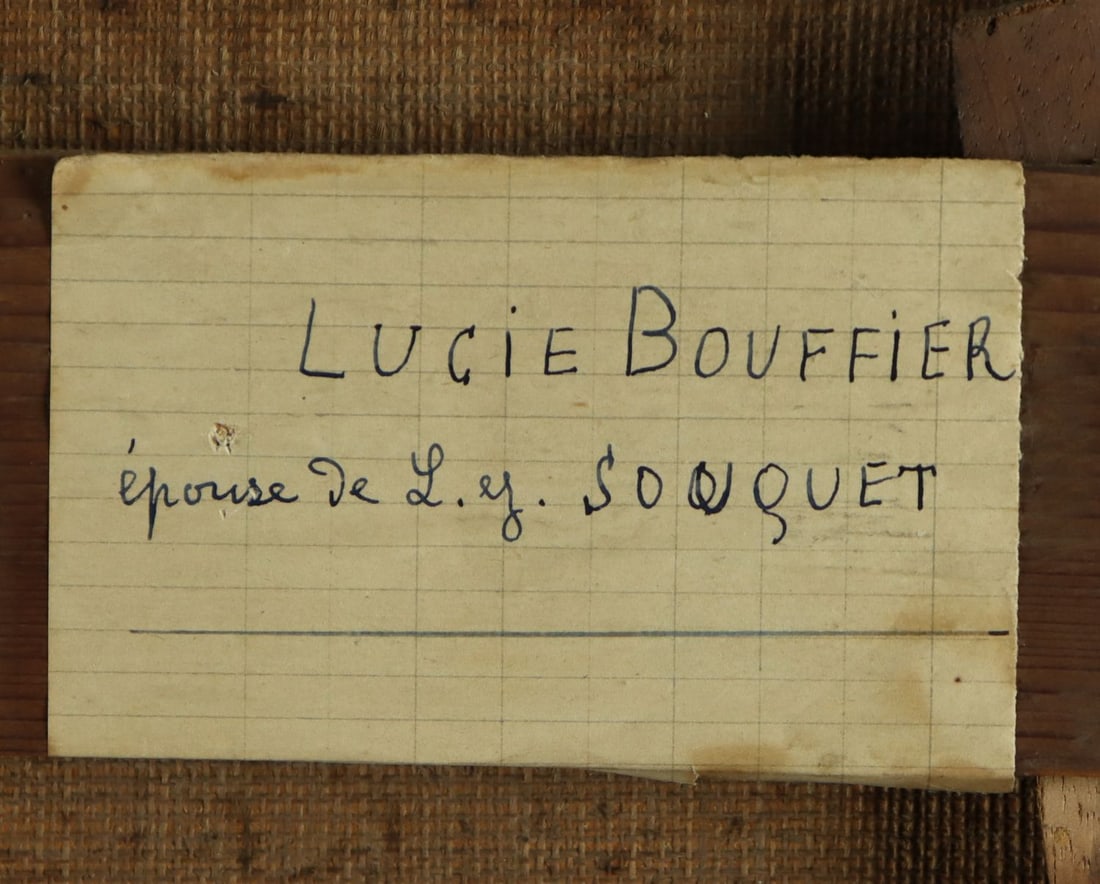 LUCiE BOUFFiER
épouse de L. ej. SOUQUET